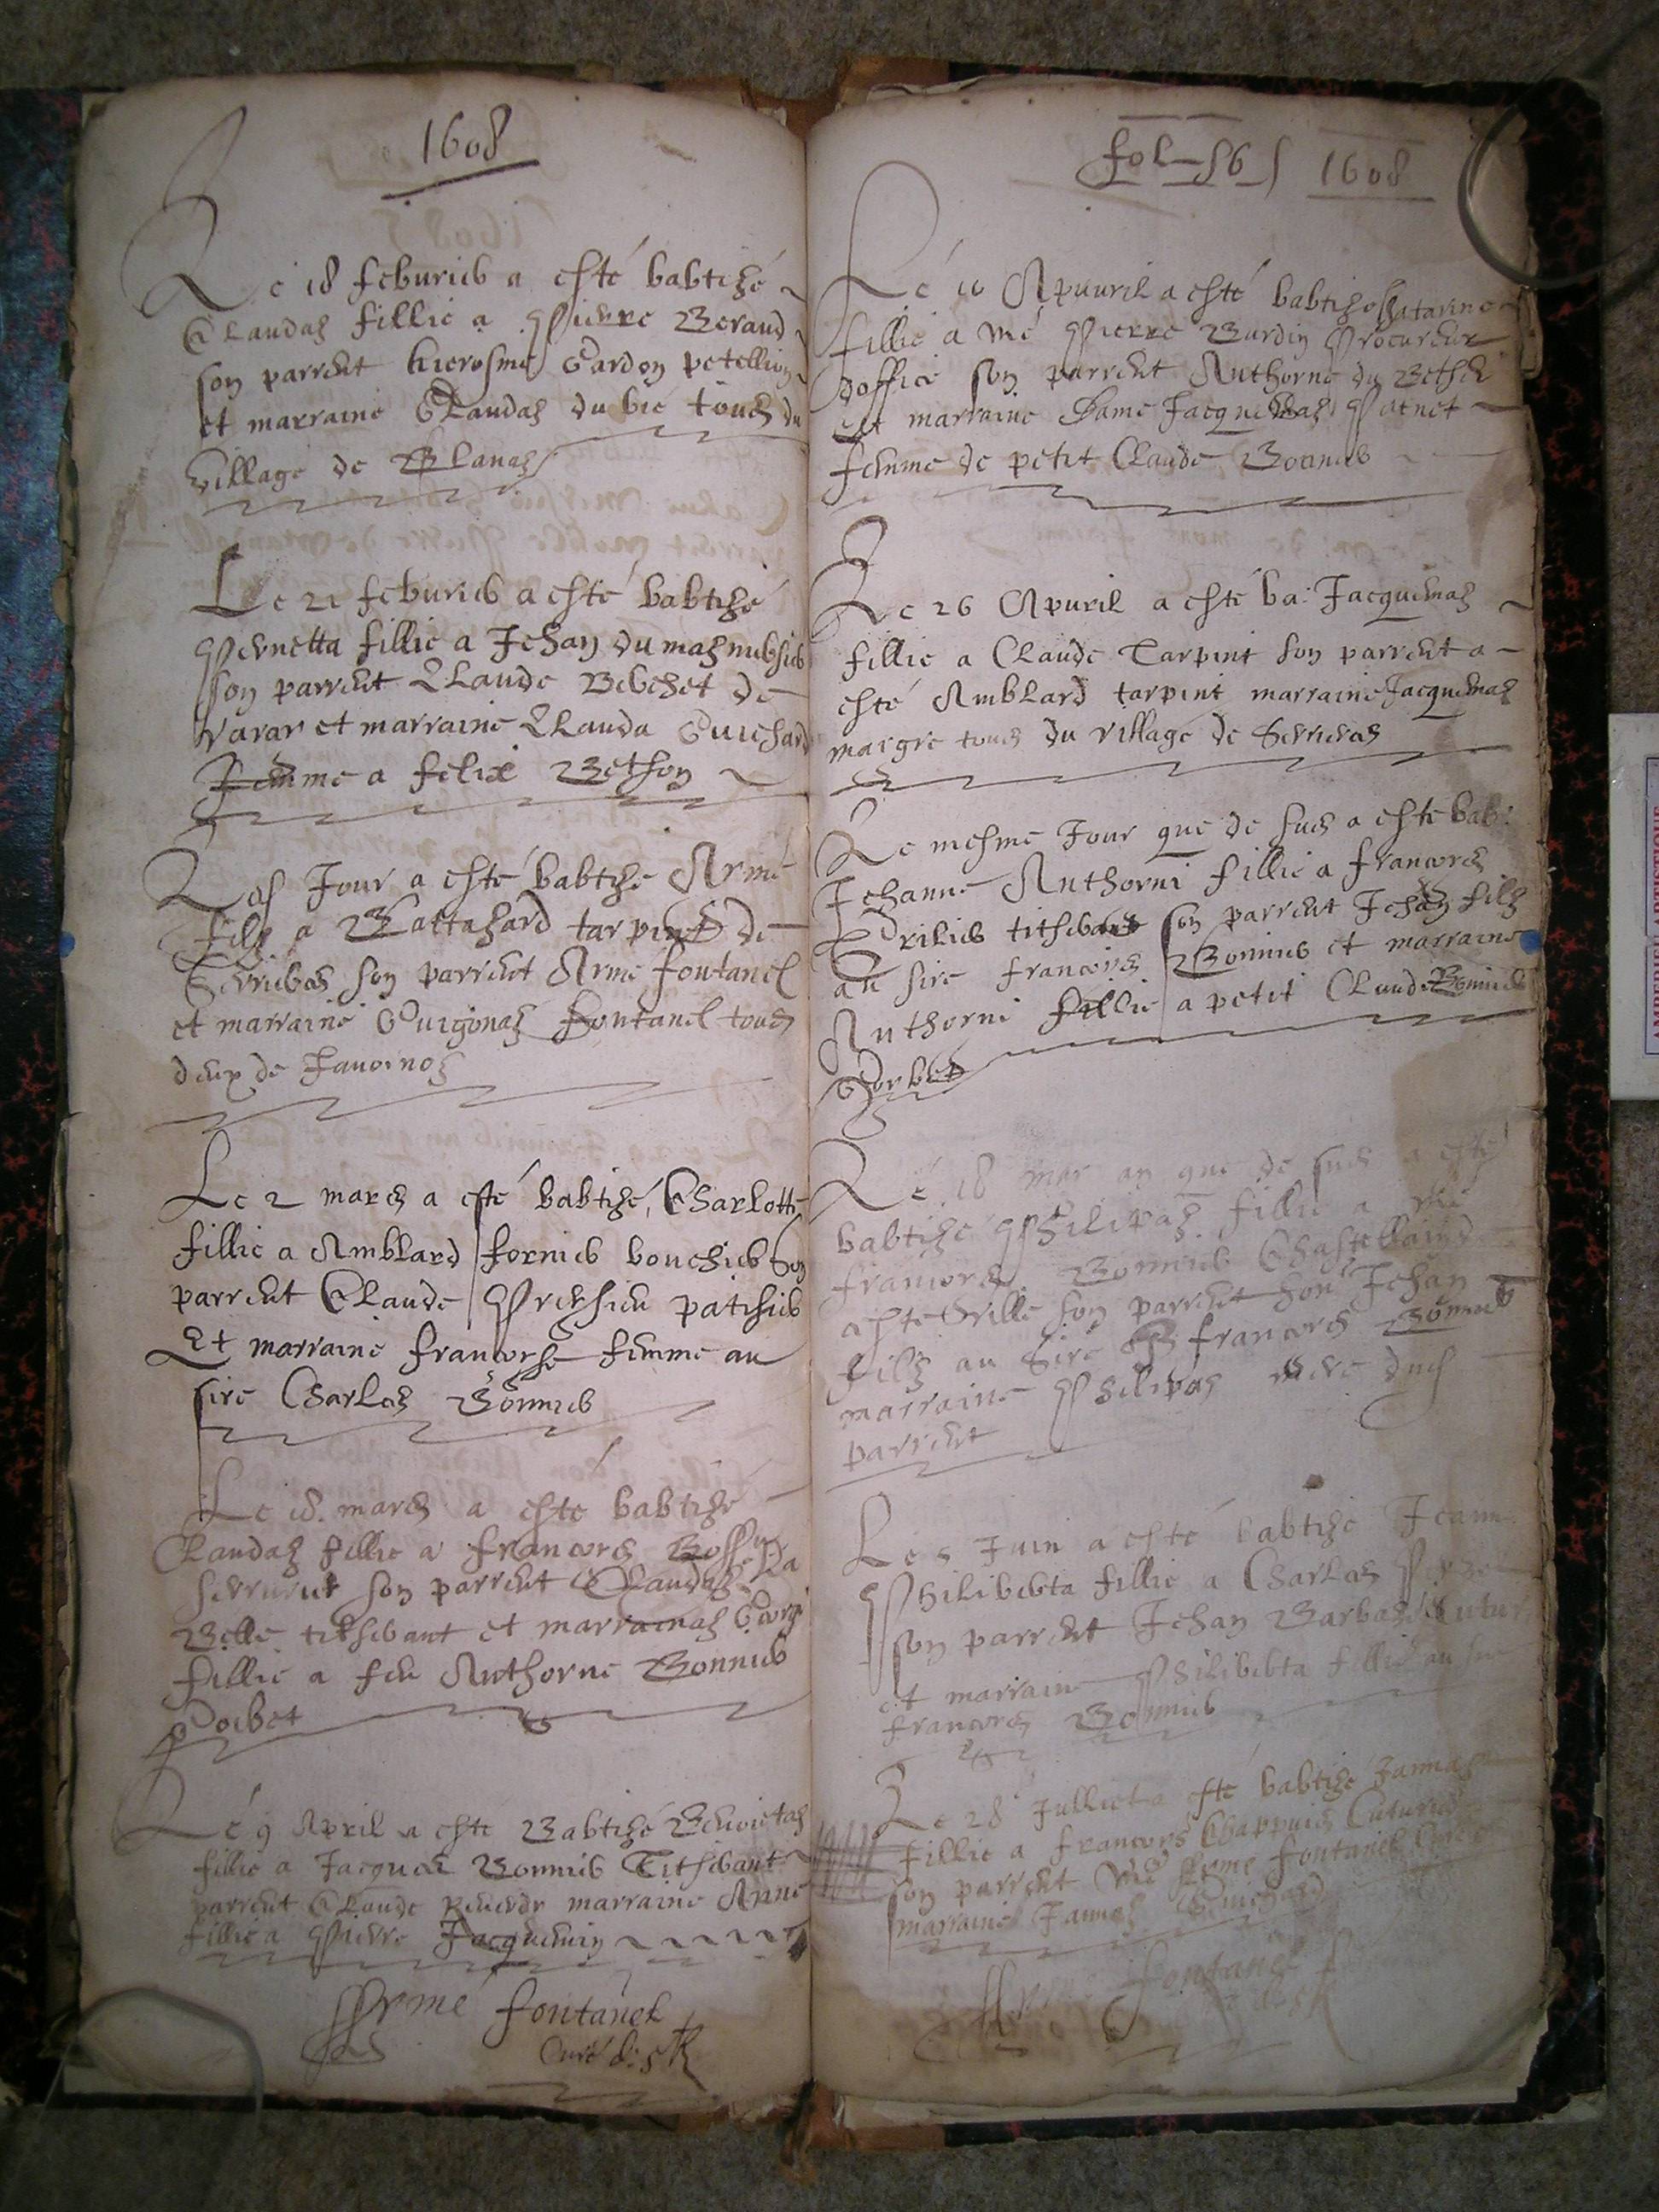 1608
Le 18 feburier a esté babtizé
Claudaz fillie a Pierre Beraud
son parrent hierosme Gardon petellion
et marraine Claudaz du bie tous du
village de Blanaz
Le 21 feburier a esté babtizé
Pernetta fillie a Jehan du maz
son parrent Claude Berchet de
varar et marraine Clauda Guichard
femme a felix Betson
Jour a esté babtizé Armé
filz a tarpint de
Serrieres son parrent Armé fontanel
et marraine Guigonaz fontanel tous
deux de Javornoz
Le 2 mars a esté babtizé Charlotte
fillie a Amblard fornier bouchier son
parrent Claude patissier
Et marraine francoise femme au
sire Charles Bonnier
Le 18. mars a esté babtizé
Claudaz fillie a francoys
serrurier son parrent Claudaz La
Belle tisserant et marrainaz
fillie a feu Anthorne Bonnier
Gorbet
Le 9 April a esté Babtizé
fillie a Jacques Bonnier Titserant
parrent Claude marraine Anne
fillie a Pierre Jacquemin
Armé fontanel
Curé
fol 56 1608
Le 10 Apuuril a esté babtizé Catarine
fillie a Mé Pierre Burdin Procureur
doffice son parrent Anthorne du
Et marraine Dame
femme de petit Claude Bonnier
Le 26 Apuril a esté ba: Jacquemaz
fillie a Claude Tarpint son parrent a
esté Amblard tarpint marraine Jacquemaz
maigre tous du village de Serrieres
Le mesme Jour que de sus a esté bab:
Jehanne Anthorni fillie a francoys
titserant son parrent Jehan filz
au sire francoys Bonnier et marraine
Anthorni fillie a petit Claude Bonnier
Gorbet
Le 18 Mar an que de sus a esté
babtizé Philipaz fillie a Mé
francoys Bonnier Chastellain de
ceste Ville son parrent hon Jehan
filz au Sire francoys Bonnier
marraine Philipaz mere dud
parrent
Le 5 Juin a esté babtizé Jeanne
Philiberta fillie a Charles
son parrent Jehan
et marraine Philiberta fillie au sire
francoys Bonnier
Le 28 Julliet a esté babtizé Jannaz
fillie a francoys Chappuis Cuturier
son parrent Mé Armé fontanel Curé
marraine Jannaz Guichard
Armé fontanel